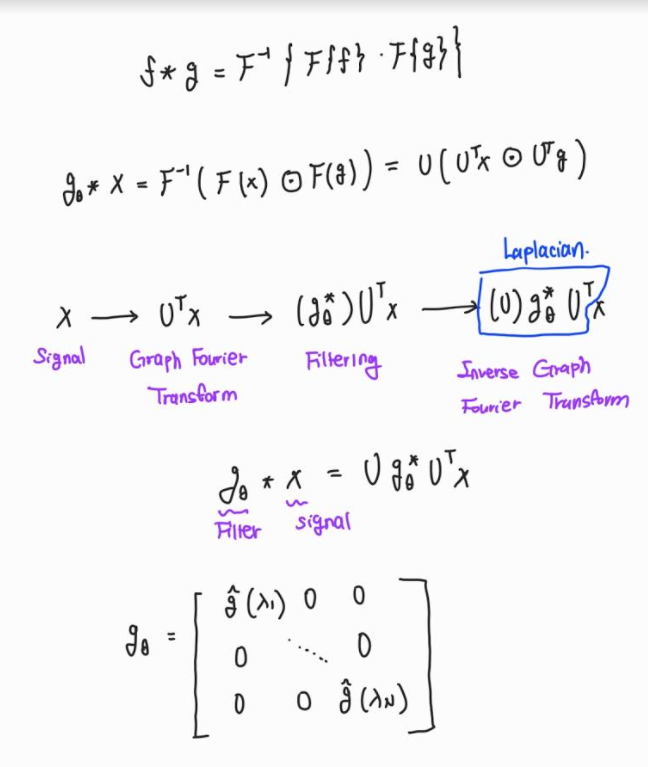 f * g = F⁻¹ { F{f} · F{g} }
g_θ * x = F⁻¹ ( F(x) ⊙ F(g) ) = U ( Uᵀx ⊙ Uᵀg )
Laplacian.
x ⟶ Uᵀx ⟶ (g_θ^*) Uᵀx ⟶ (U) g_θ^* Uᵀx
Signal Graph Fourier Transform Filtering Inverse Graph Fourier Transform
g_θ * x = U g_θ^* Uᵀx
Filter signal
g_θ = [ ĝ(λ₁) 0 0
0 ⋱ 0
0 0 ĝ(λ_N) ]